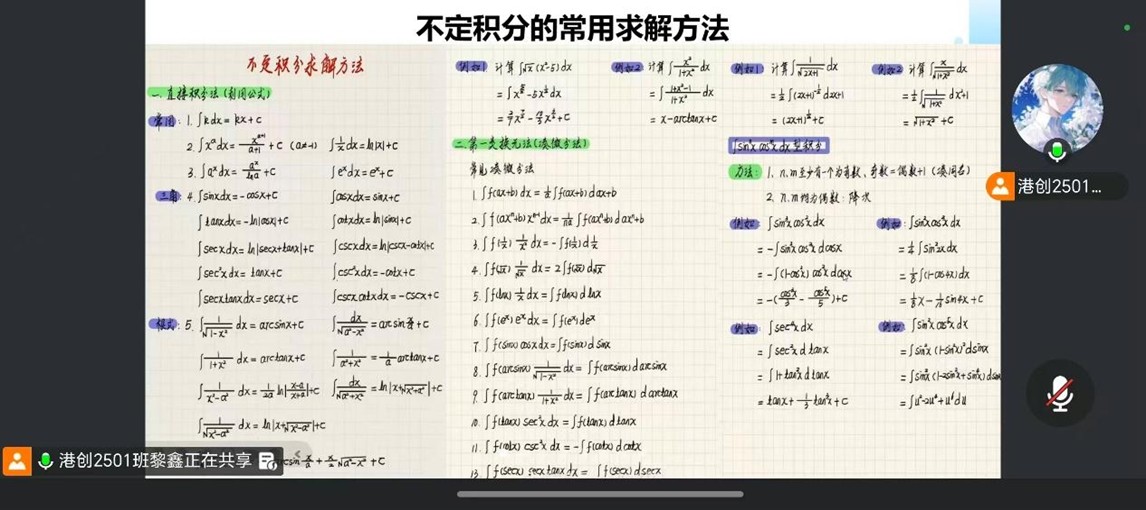 不定积分的常用求解方法
不定积分求解方法
一. 直接积分法(利用公式)
常用: 1. ∫kdx = kx+c
2. ∫xᵃdx = xᵃ⁺¹/(a+1) + c (a≠-1) ∫1/x dx = ln|x|+c
3. ∫aˣdx = aˣ/lna + c ∫eˣdx = eˣ+c
三角: 4. ∫sinxdx = -cosx+c ∫cosxdx = sinx+c
∫tanxdx = -ln|cosx|+c ∫cotxdx = ln|sinx|+c
∫secxdx = ln|secx+tanx|+c ∫cscxdx = ln|cscx-cotx|+c
∫sec²xdx = tanx+c ∫csc²xdx = -cotx+c
∫secxtanxdx = secx+c ∫cscxcotxdx = -cscx+c
根式: 5. ∫1/√(1-x²) dx = arcsinx+c ∫dx/√(a²-x²) = arcsin x/a + c
∫1/(1+x²) dx = arctanx+c
∫1/(x²-a²) dx = 1/2a ln|(x-a)/(x+a)|+c ∫dx/√(x²+a²) = ln|x+√(x²+a²)|+c
∫1/√(x²-a²) dx = ln|x+√(x²-a²)|+c
例如1 计算∫√x(x²-5)dx
例如2 计算∫x²/(1+x²) dx
= ∫(1+x²-1)/(1+x²) dx
= x-arctanx+c
二. 第一类换元法(凑微分法)
常见凑微分法
1. ∫f(ax+b)dx = 1/a ∫f(ax+b)dax+b
3. ∫f(1/x) 1/x² dx = -∫f(1/x)d1/x
4. ∫f(√x) 1/√x dx = 2∫f(√x)d√x
5. ∫f(lnx) 1/x dx = ∫f(lnx)dlnx
6. ∫f(eˣ)eˣdx = ∫f(eˣ)deˣ
7. ∫f(sinx)cosxdx = ∫f(sinx)dsinx
8. ∫f(arcsinx) 1/√(1-x²) dx = ∫f(arcsinx)darcsinx
9. ∫f(arctanx) 1/(1+x²) dx = ∫f(arctanx)darctanx
10. ∫f(tanx)sec²xdx = ∫f(tanx)dtanx
11. ∫f(cotx)csc²xdx = -∫f(cotx)dcotx
13. ∫f(secx)secxtanxdx = ∫f(secx)dsecx
例如1 计算∫1/√(2x+1) dx
= (2x+1)^½+c
例如2 计算∫x/√(1+x²) dx
= ½∫1/√(1+x²) dx²+1
= √(1+x²)+c
方法: 1. n.m至少有一个为奇数, 奇数=偶数+1(凑同名)
2. n.m均为偶数: 降次
例如 ∫sin³xcos²xdx
= -∫sin²xcos²xdcosx
= -∫(1-cos²x)cos²xdcosx
= -(cos³x/3 - cos⁵x/5)+c
例如 ∫sin²xcos²xdx
= ¼∫sin²2xdx
= ⅛∫(1-cos4x)dx
例如 ∫sec⁴xdx
= ∫sec²xdtanx
= ∫1+tan²xdtanx
= tanx+⅓tan³x+c
例如 ∫sin²xcos⁵xdx
= ∫sin²x(1-sin²x)²dsinx
= ∫u²-2u⁴+u⁶du
港创2501...
港创2501班黎鑫正在共享